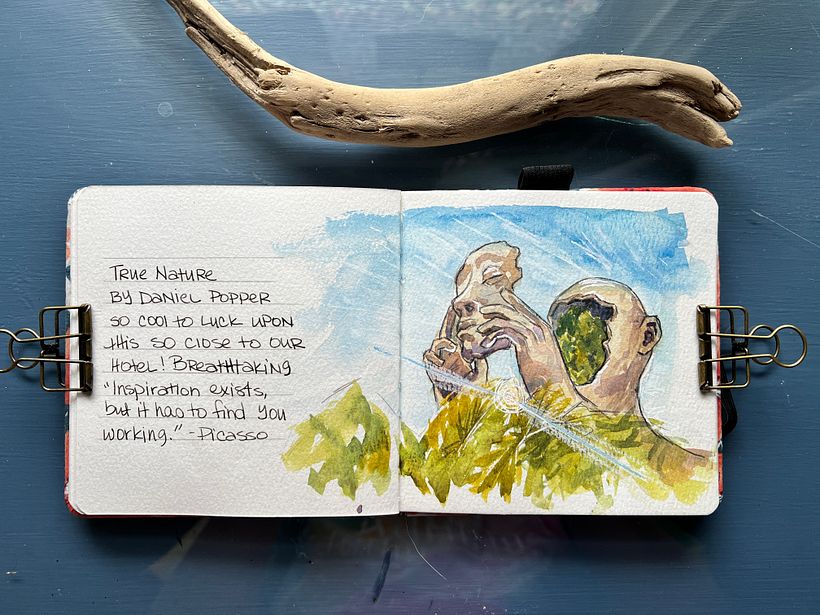 True Nature
By Daniel Popper
so cool to Luck upon
this so close to our
Hotel! Breathtaking
"Inspiration exists,
but it has to find you
working." -Picasso